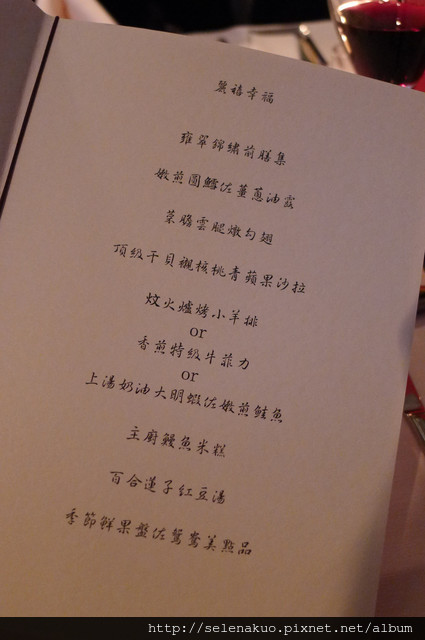 麗禧幸福
雍翠錦繡前膳集
嫩煎圓鱈佐薑蔥油露
菜膽雲腿燉勾翅
頂級干貝襯核桃青蘋果沙拉
炆火爐烤小羊排
or
香煎特級牛菲力
or
上湯奶油大明蝦佐嫩煎鮭魚
主廚鰻魚米糕
百合蓮子紅豆湯
季節鮮果盤佐鴛鴦美點品
http://selenakuo.pixnet.net/album